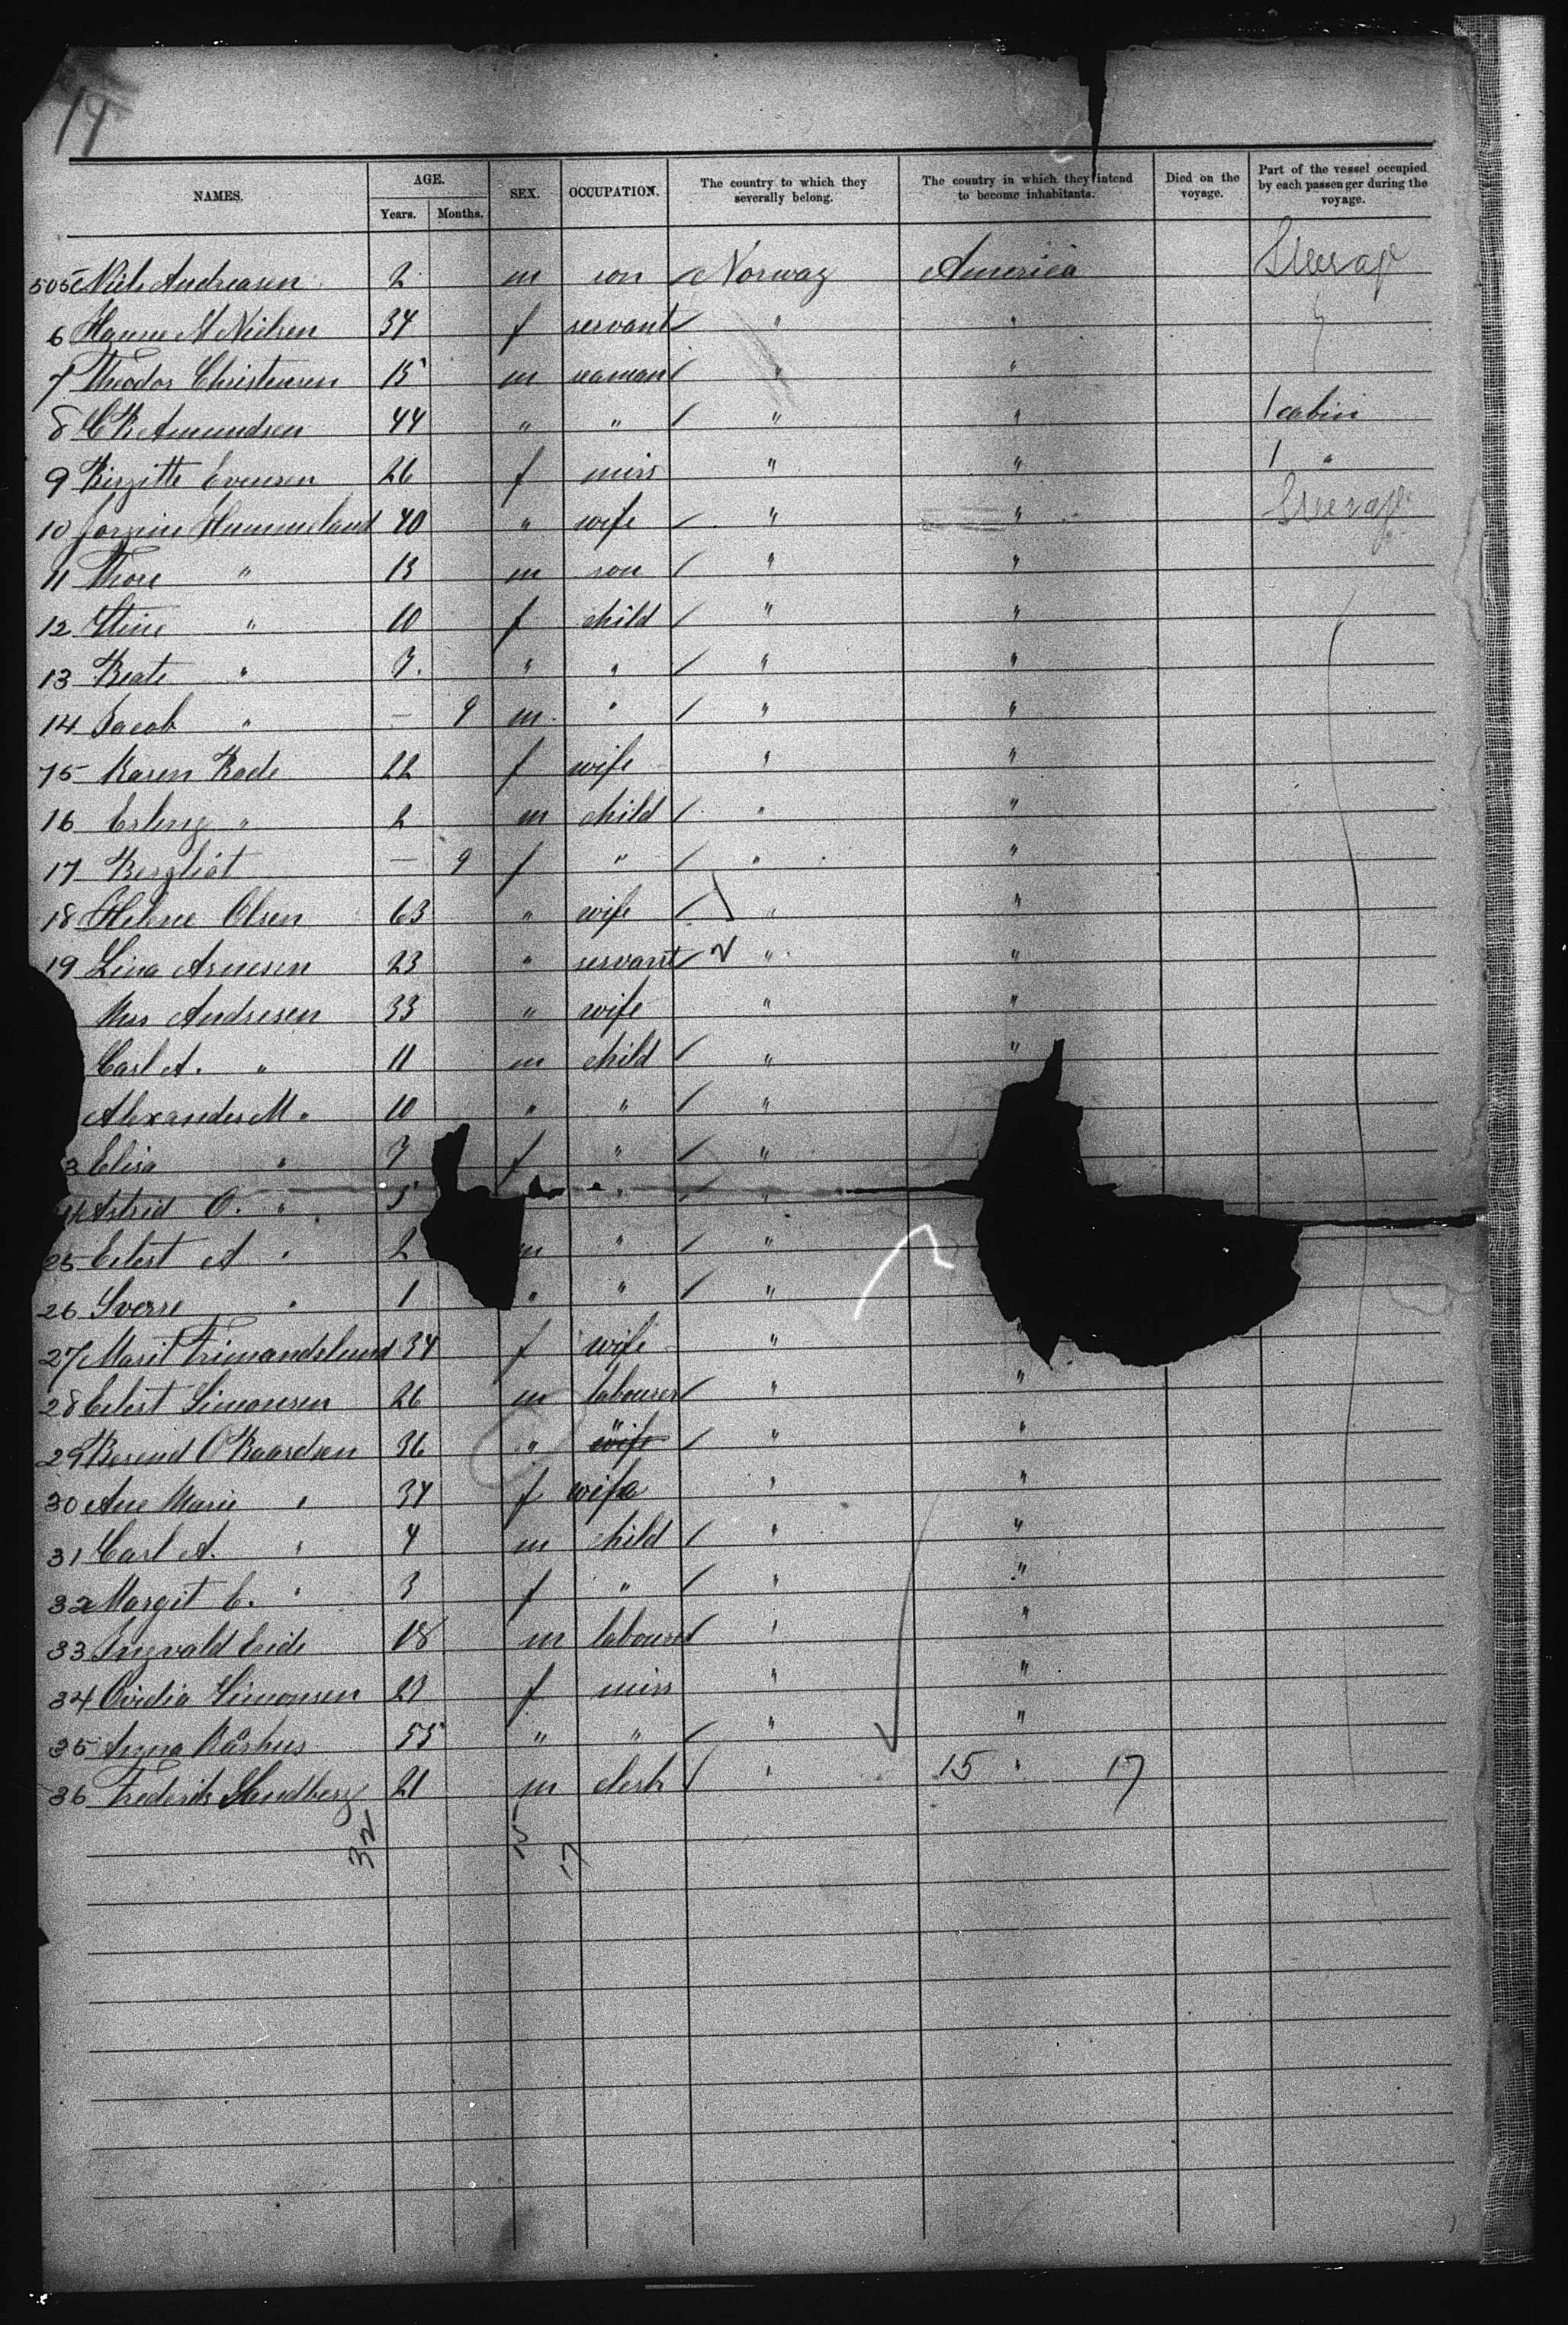 14
NAMES. AGE. SEX. OCCUPATION. The country to which they severally belong. The country in which they intend to become inhabitants. Died on the voyage. Part of the vessel occupied by each passenger during the voyage.
Years. Months.
505 Niels Andreasen 2 m son Norway America Steerage
6 Hanne M Nielsen 34 f servant / " "
7 Theodor Christensen 15 m seaman / " "
8 C R Amundsen 44 " " / " " 1 cabin
9 Birgitte Evensen 26 f miss " " 1 "
10 Jorgine Hummeland 40 " wife / " " Steerage
11 Thore " 13 m son / " "
12 Stine " 10 f child / " "
13 Beate " 7. " " / " "
14 Jacob " — 9 m " / " "
15 Karen Bade 22 f wife " "
16 Erling " 2 m child / " "
17 Bergliot — 9 f " / " "
18 Helene Olsen 63 " wife / " "
19 Lina Arnesen 23 " servant / " "
Mrs Andresen 33 " wife " "
Carl A. " 11 m child / " "
Alexander M " 10 " " / "
3 Elisa " 7 f " / "
24 Astrid O. " 5 " / "
25 Eilert A " 2 m " / "
26 Sverre " 1 " " / "
27 Marit Trimandslund 34 f wife " "
28 Eilert Simonsen 26 m labourer / " "
29 Berend O Baardsen 36 " wife " / " "
30 Ane Marie " 34 f wife " "
31 Carl A. " 4 m child / " "
32 Margit C. " 3 f " / " "
33 Ingvald Eide 18 m labourer / " "
34 Ovidia Simonsen 23 f miss " "
35 Anna Aarhus 55 " " / " "
36 Frederik Sundberg 21 m clerk / " 15 " 17
32 15 17